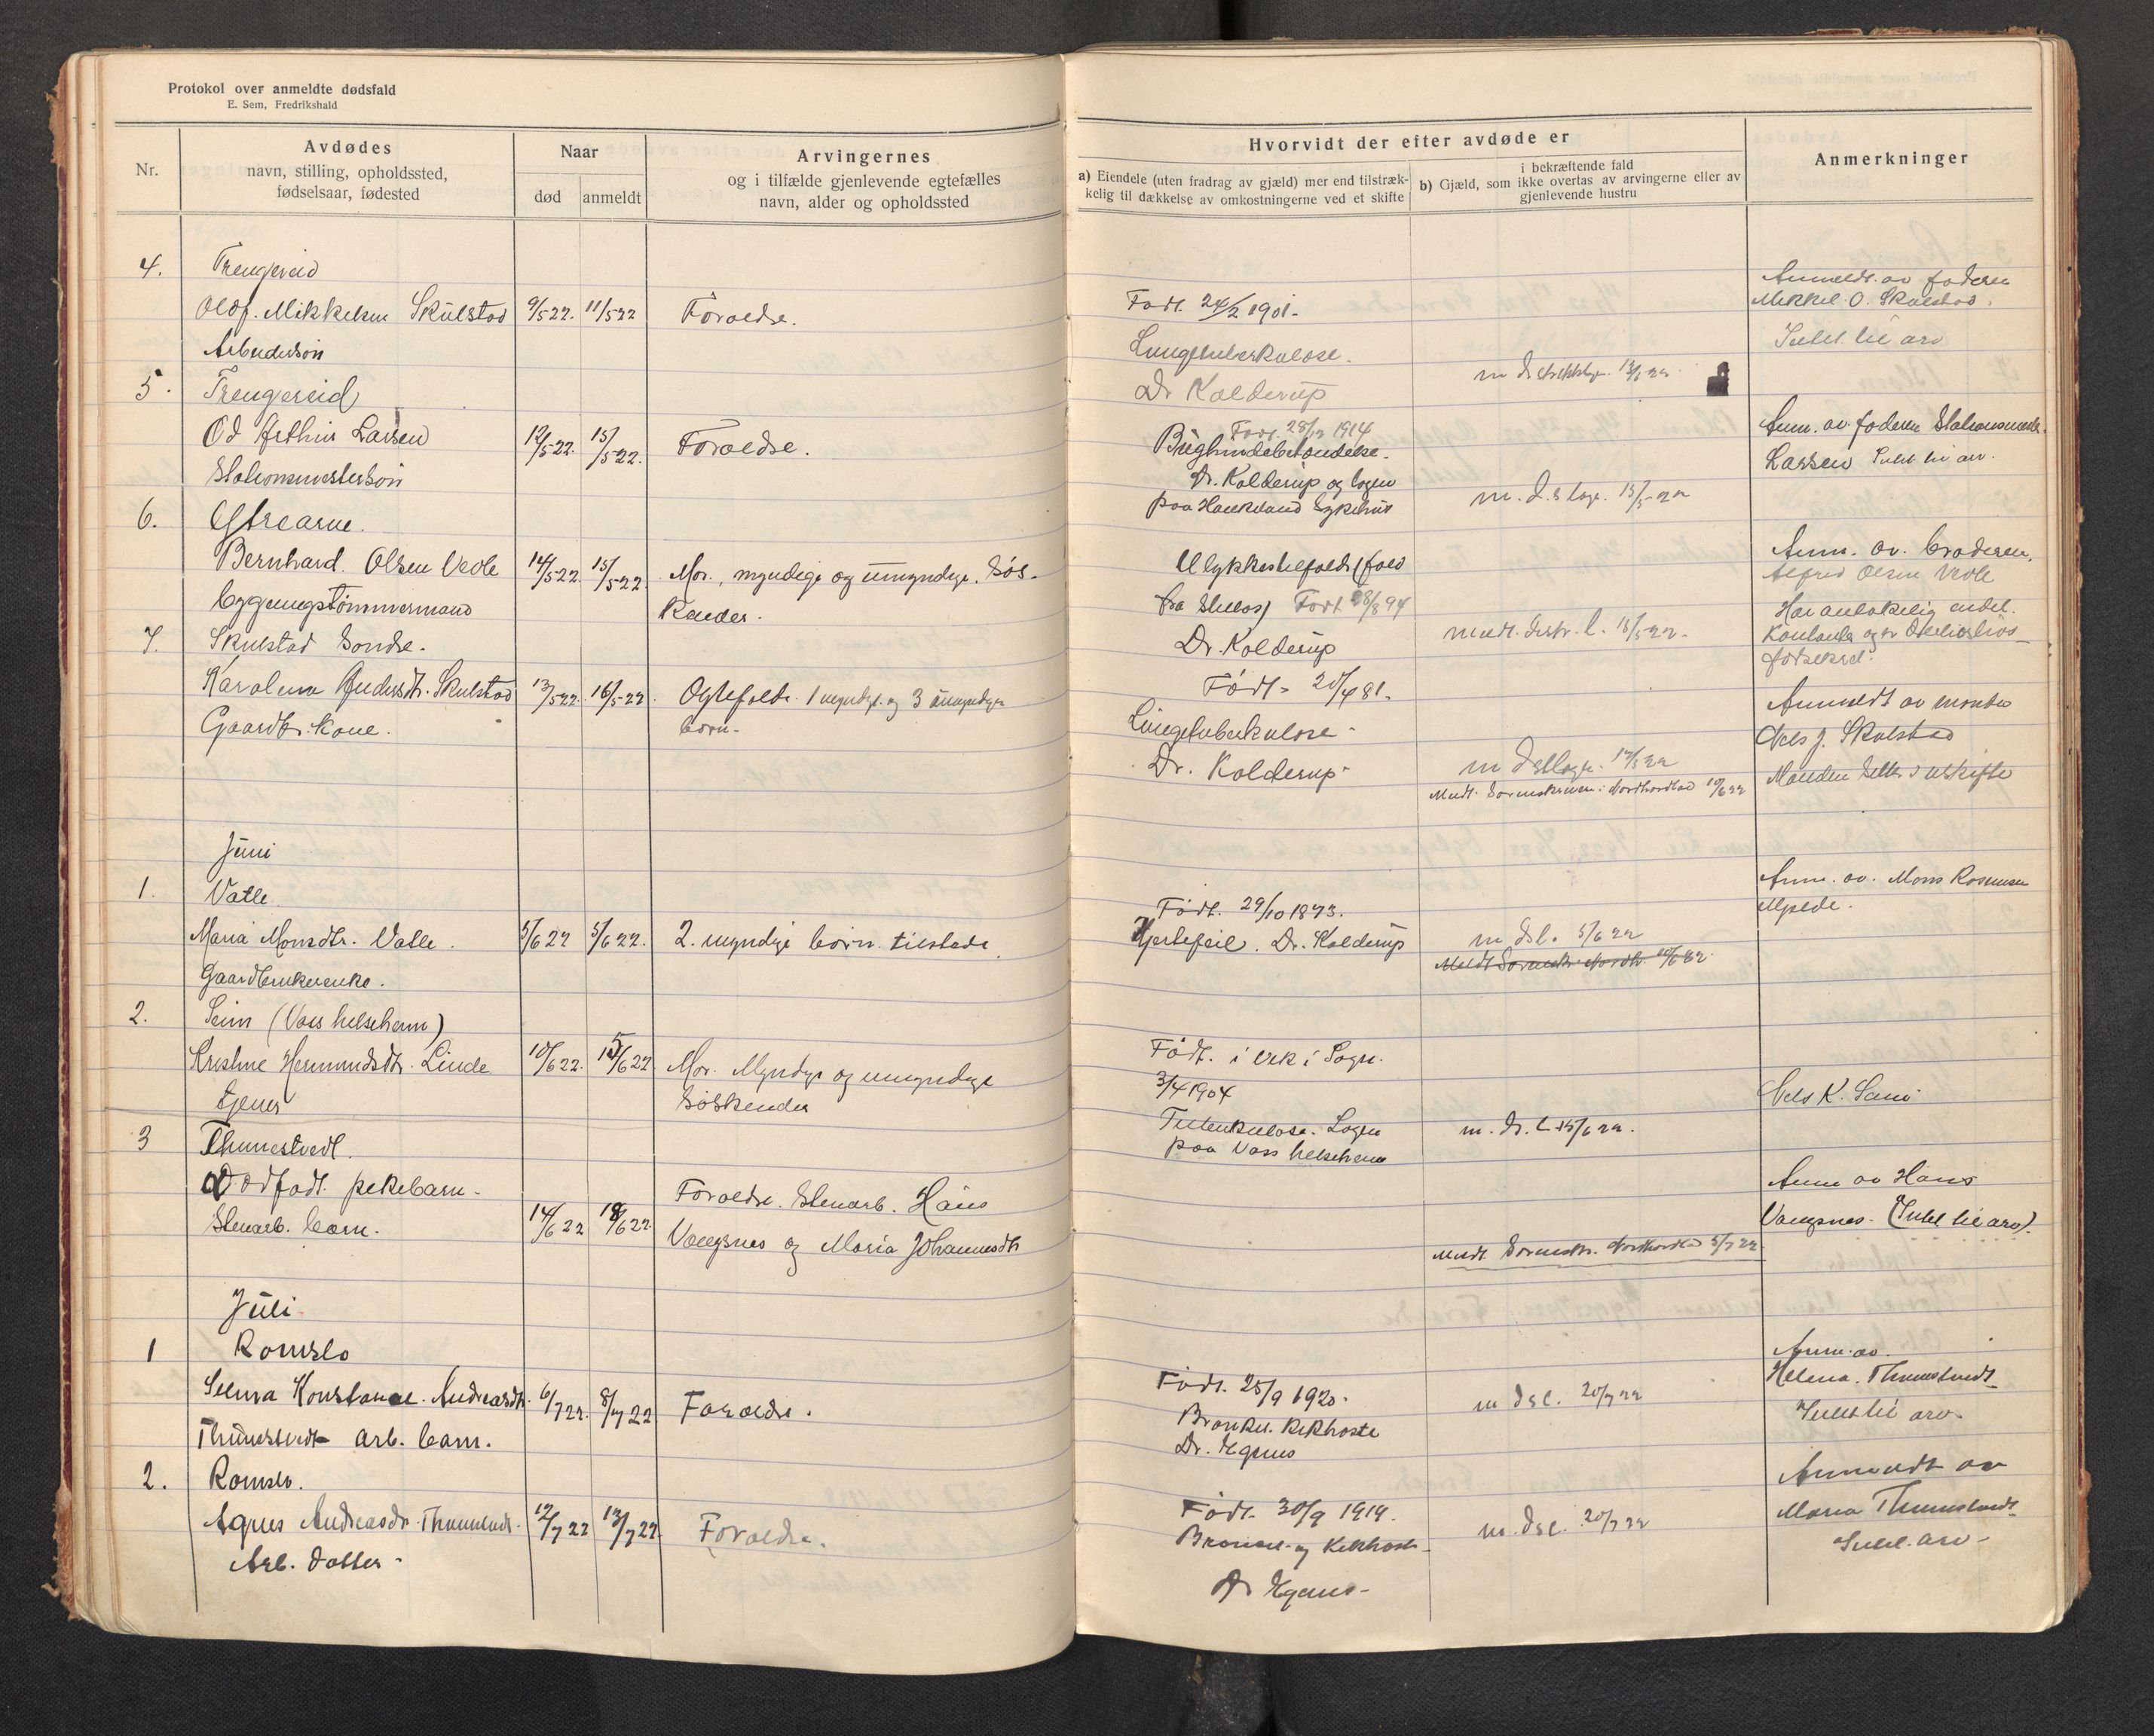 Protokol over anmeldte dødsfald
E. Sem, Fredrikshald
Nr.
Avdødes
navn, stilling, opholdssted,
fødselsaar, fødested
Naar
død
anmeldt
Arvingernes
og i tilfælde gjenlevende egtefælles
navn, alder og opholdssted
Hvorvidt der efter avdøde er
a) Eiendele (uten fradrag av gjæld) mer end tilstræk-
kelig til dækkelse av omkostningerne ved et skifte
i bekræftende fald
b) Gjæld, som ikke overtas av arvingerne eller av
gjenlevende hustru
Anmerkninger
4. Trengereid
Olaf. Mikkelsen Skulstad 9/5 22. 11/5 22 Forældre.
Arbeiderson
Født. 24/2 1901.
Lungetuberkulose.
Dr Kolderup
13/5 22
Anmeldt av faderen
Mikkel O. Skulstad.
Intet til arv
5. Trengereid
Od Arthur Larsen 12/5 22. 15/5 22. Forældre.
Stationsmesterson
Født. 1914
Bughindebetændelse.
Dr. Kolderup og lægen
paa Haukeland Sykehus
m. d. s læge. 15/5 22
Anm. av faderen Stationsmester
Larsen Intet til arv.
6. Ytrearne.
Bernhard. Olsen Vedle 14/5 22. 15/5 22. Mor, myndige og umyndige. Søs-
bygningstømmermand kender.
Ulykkestilfælde (fald
fra stillas) Født 28/8 94
Dr. Kolderup
meldt. distr. l. 15/5 22.
Anm. av. broderen,
Alfred Olsen Vedle
7. Skulstad Søndre.
Karolina Andersdtr. Skulstad 13/5 22. 16/5 22. Egtefælle. 1 myndig. og 3 umyndige
Gaardbr. kone. børn.
Født. 20/4 81.
Lungetuberkulose.
Dr. Kolderup
17/5 22
Meldt. Sorenskriveren i Nordhordland 10/6 22
Anmeldt av manden
Nels J. Skulstad
Manden sitter i uskifte
Juni
1. Vatle
Maria Monsdtr. Vatle. 5/6 22 5/6 22. 2. myndige børn tilstede.
Gaardbrukerenke.
Født. 29/10 1873.
Hjertefeil. Dr. Kolderup
m dsl. 5/6 22
Meldt Sorenskr. Nordh. 10/6 22
Anm. av. Mons Rasmusen
Mjelde.
2. Seim (Voss helseheim)
Kristine Hermundsdtr. Linde 10/6 22. 15/6 22 Mor. Myndige og umyndige
tjener søskender
Født. i Vik i Sogn.
3/4 1904
Tuberkulose. Lægen
paa Voss helseheim
m. ds. l. 15/6 22.
Nels K. Seim
3 Thunestvedt.
Dødfødt. pikebarn.
Stenarb. barn. 14/6 22 18/6 22. Forældre. Stenarb. Hans
Vangsnes og Maria Johannesdtr
Meldt. Sorenskr. Nordhordland 5/7 22
Anm av Hans
Vangsnes. (Intet til arv).
Juli
1 Romslo
Selma Konstanse. Andreasdtr. 6/7 22. 8/7 22 Forældre.
Thunestvedt arb. barn.
Født. 25/9 1920.
Bronkit. Kikhoste
Dr.
m dsl. 20/7 22
Anm. av.
Helena. Thunestvedt
Intet til arv.
2. Romslo.
Agnes Andreasdr. Thunestvedt. 12/7 22 13/7 22 Forældre.
Arb. datter.
Født. 30/9 1919.
Bronkit og Kikhoste
Dr
m. dsl. 20/7 22
Anmeldt av
Maria Thunestvedt
Intet. arv.